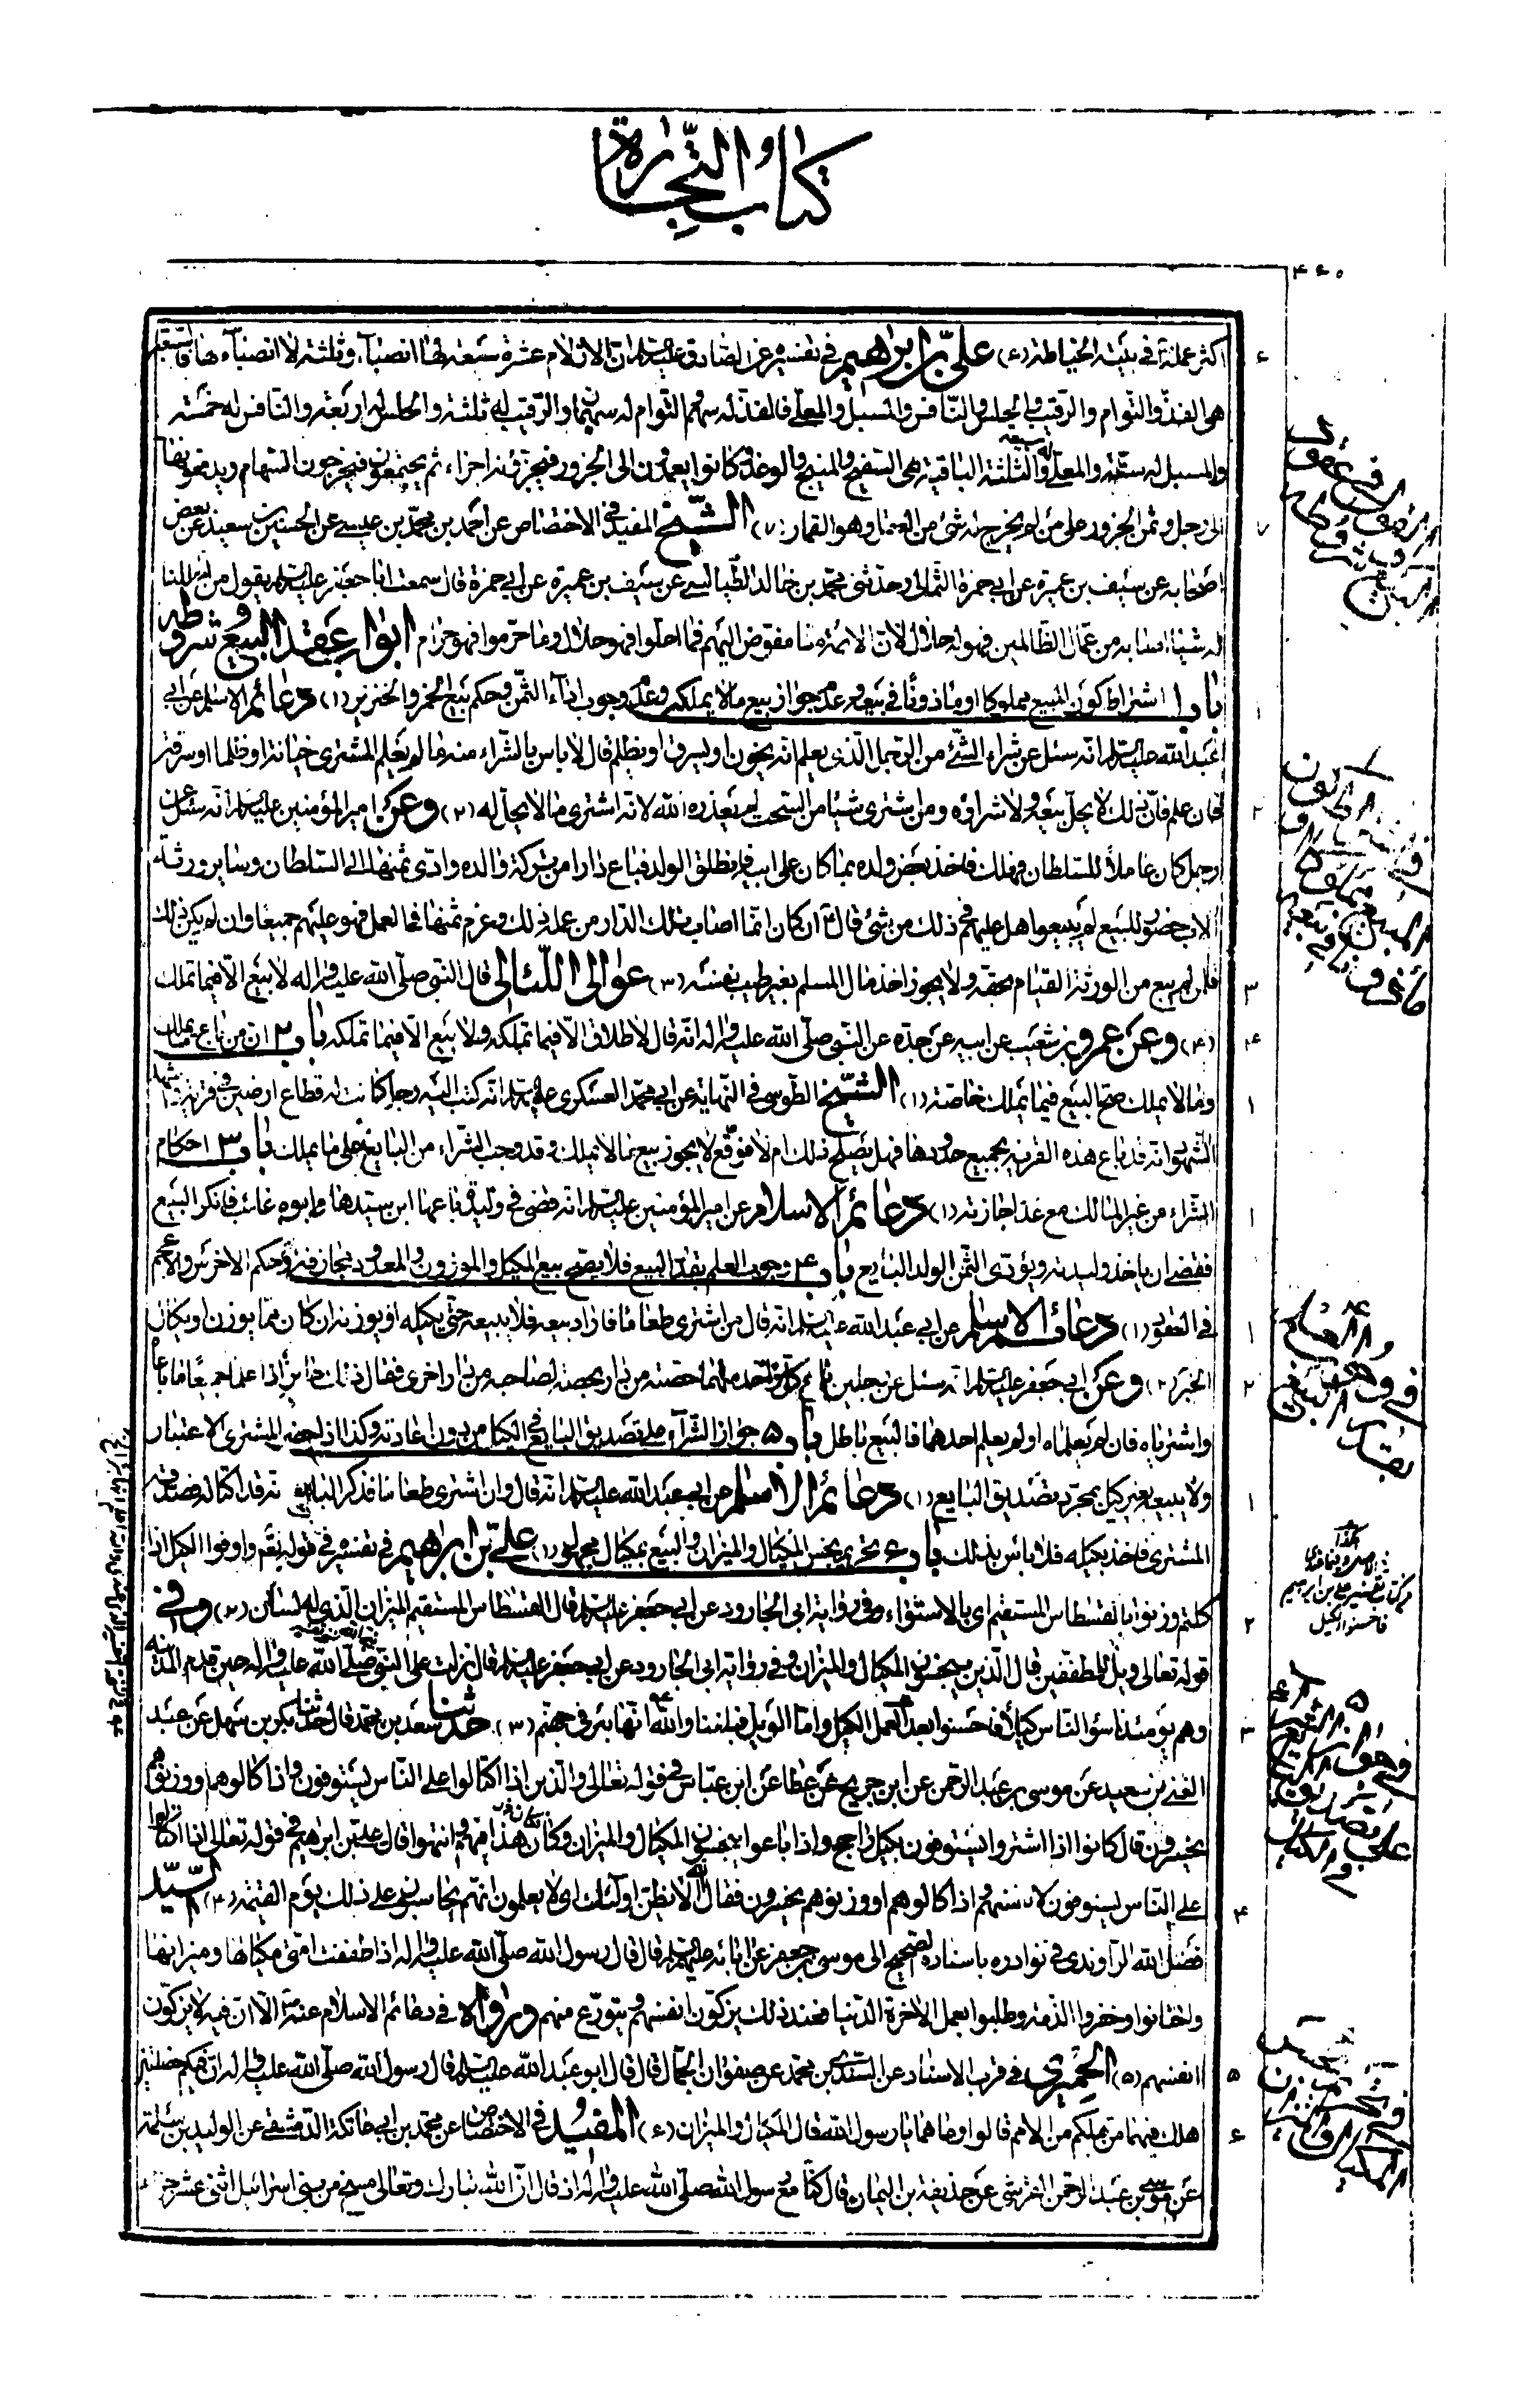 كتاب التجارة
٤٦٠
اكثر عمله في بيته الخياطة (٦) علي بن ابراهيم في تفسيره عن الصادق عليه السلام ان الازلام عشرة سبعة لها انصباء وثلثة لا انصباء لها فالتي لها
هي الفذ والتوام والرقيب والحلس والنافس والمسبل والمعلى فالفذ له سهم والتوام له سهمان والرقيب له ثلثة والحلس له اربعة والنافس له خمسة
والمسبل له ستة والمعلى له سبعة والثلثة الباقية هي السفيح والمنيح والوغد وكانوا يعمدون الى الجزور فيجزؤنه اجزاء ثم يجتمعون فيخرجون السهام ويدفعونها
الى رجل وثمن الجزور على من لم يخرج له شئ من الغنم وهو القمار (٧) الشيخ المفيد في الاختصاص عن احمد بن محمد بن عيسى عن الحسين بن سعيد عن بعض
اصحابه عن سيف بن عميرة عن ابي حمزة الثمالي وحدثني محمد بن خالد الطيالسي عن سيف بن عميرة عن ابي حمزة قال سمعت ابا جعفر عليه السلام يقول من احللنا
له شيئا اصابه من عمال الظالمين فهو له حلال لان الائمة منا مفوض اليهم فما احلوا فهو حلال وما حرموا فهو حرام ابواب عقد البيع وشروطه
باب ١ اشتراط كون المبيع مملوكا او ماذونا في بيعه وعدم جواز بيع ما لا يملكه وعدم وجوب اداء الثمن وحكم بيع الخمر والخنزير (١) دعائم الاسلام عن ابي
عبد الله عليه السلام انه سئل عن شراء الشئ من الرجل الذي يعلم انه يخون او يسرق او يظلم قال لا باس بالشراء منه ما لم يعلم المشتري خيانة او ظلما او سرقة
فان علم فان ذلك لا يحل بيعه ولا شراؤه ومن اشترى شيئا من السحت لم يعذره الله لانه اشترى ما لا يحل له (٢) وعن امير المؤمنين عليه السلام انه سئل عن
رجل كان عاملا للسلطان فهلك فاخذ بعض ولده بما كان على ابيه فانطلق الولد فباع دارا من تركة والده وادى ثمنها الى السلطان وساير ورثة
الاب حضور للبيع لم يبيعوا هل عليهم في ذلك من شئ قال ان كان انما اصاب تلك الدار من عمله ذلك وغرم ثمنها في العمل فهو عليهم جميعا وان لم يكن ذلك
فلمن لم يبع من الورثة القيام بحقه ولا يجوز اخذ مال المسلم بغير طيب نفسه (٣) عوالي اللئالي قال النبي صلى الله عليه واله لا بيع الا فيما تملك
(٤) وعن عمرو بن شعيب عن ابيه عن جده عن النبي صلى الله عليه واله انه قال لا طلاق الا فيما تملكه ولا بيع الا فيما تملكه باب ٢ ان من باع ما يملك
وما لا يملك صح البيع فيما يملك خاصة (١) الشيخ الطوسي في النهاية عن ابي محمد العسكري عليه السلام انه كتب اليه رجل كانت له قطاع ارضين في قرية
الشهود انه قد باع هذه القرية بجميع حدودها فهل يصلح ذلك ام لا فوقع لا يجوز بيع ما لا تملك وقد وجب الشراء من البايع على ما يملك باب ٣ احكام
الشراء من غير المالك مع عدم اجازته (١) دعائم الاسلام عن امير المؤمنين عليه السلام انه قضى في وليدة باعها ابن سيدها وابوه غائب فانكر البيع
فقضى ان ياخذ وليدته ويؤدي الثمن الولد البايع باب ٤ وجوب العلم بقدر البيع فلا يصح بيع المكيل والموزون والمعدود مجازفة وحكم الاخرس والاعجم
في العقود (١) دعائم الاسلام عن ابي عبد الله عليه السلام انه قال من اشترى طعاما فاراد بيعه فلا يبيعه حتى يكيله او يوزنه ان كان مما يوزن او يكال
الخبر (٢) وعن ابي جعفر عليه السلام انه سئل عن رجلين باع كل واحد منهما حصته من دار بحصة لصاحبه من دار اخرى فقال ذلك جايز اذا علما جميعا ما باعاه
واشترياه فان لم يعلماه او لم يعلم احدهما فالبيع باطل باب ٥ جواز الشراء على تصديق البايع في الكيل من دون اعادته وكذا اذا حضر المشتري الاعتبار
ولا يبيعه بغير كيل بمجرد تصديق البايع (١) دعائم الاسلام عن ابي عبد الله عليه السلام انه قال وان اشترى طعاما فذكر البايع انه قد اكتاله فصدقه
المشتري فاخذ بكيله فلا باس بذلك باب ٦ تحريم بخس المكيال والميزان والبيع بمكيال مجهول (١) علي بن ابراهيم في تفسيره في قوله تعالى واوفوا الكيل اذا
كلتم وزنوا بالقسطاس المستقيم اي بالاستواء وفي رواية ابي الجارود عن ابي جعفر عليه السلام قال القسطاس المستقيم الميزان الذي له لسان (٢) وفي
قوله تعالى ويل للمطففين قال الذين يبخسون المكيال والميزان وفي رواية ابي الجارود عن ابي جعفر عليه السلام قال نزلت على النبي صلى الله عليه واله حين قدم المدينة
وهم يومئذ اسوء الناس كيلا فاحسنوا بعد العمل الكيل واما الويل فبلغنا والله انها بئر في جهنم (٣) حدثنا سعد بن محمد قال حدثنا بكر بن سهل عن عبد
الغني بن سعيد عن موسى بن عبد الرحمن عن ابن جريح عن عطا عن ابن عباس في قوله تعالى والذين اذا اكتالوا على الناس يستوفون واذا كالوهم او وزنوهم
يخسرون قال كانوا اذا اشتروا يستوفون بكيل راجح واذا باعوا يبخسون المكيال والميزان وكان هذا فيهم وانتهوا قال علي بن ابراهيم في قوله تعالى اذا اكتالوا
على الناس يستوفون لانفسهم واذا كالوهم او وزنوهم يخسرون فقال الله الا يظن اولئك اي الا يعلمون انهم يحاسبون على ذلك يوم القيمة (٤) السيد
فضل الله الراوندي في نوادره باسناده الصحيح الى موسى بن جعفر عن ابائه عليهم السلام قال قال رسول الله صلى الله عليه واله اذا طففت امتي مكيالها وميزانها
واختانوا وخفروا الذمة وطلبوا بعمل الاخرة الدنيا فعند ذلك يزكون انفسهم ويتورع منهم ورواه في دعائم الاسلام عنه الا ان فيه لا يزكون
انفسهم (٥) الحميري في قرب الاسناد عن السندي بن محمد عن صفوان الجمال قال قال ابو عبد الله عليه السلام قال رسول الله صلى الله عليه واله ان فيكم خصلتين
هلك فيهما من قبلكم من الامم قالوا وما هما يا رسول الله قال المكيال والميزان (٦) المفيد في الاختصاص عن محمد بن ابي عاتكة الدمشقي عن الوليد بن سلمة
عن موسى بن عبد الرحمن القرشي عن حذيفة بن اليمان قال كنا مع رسول الله صلى الله عليه واله اذ قال ان الله تبارك وتعالى مسخ من بني اسرائيل اثنى عشر جزء